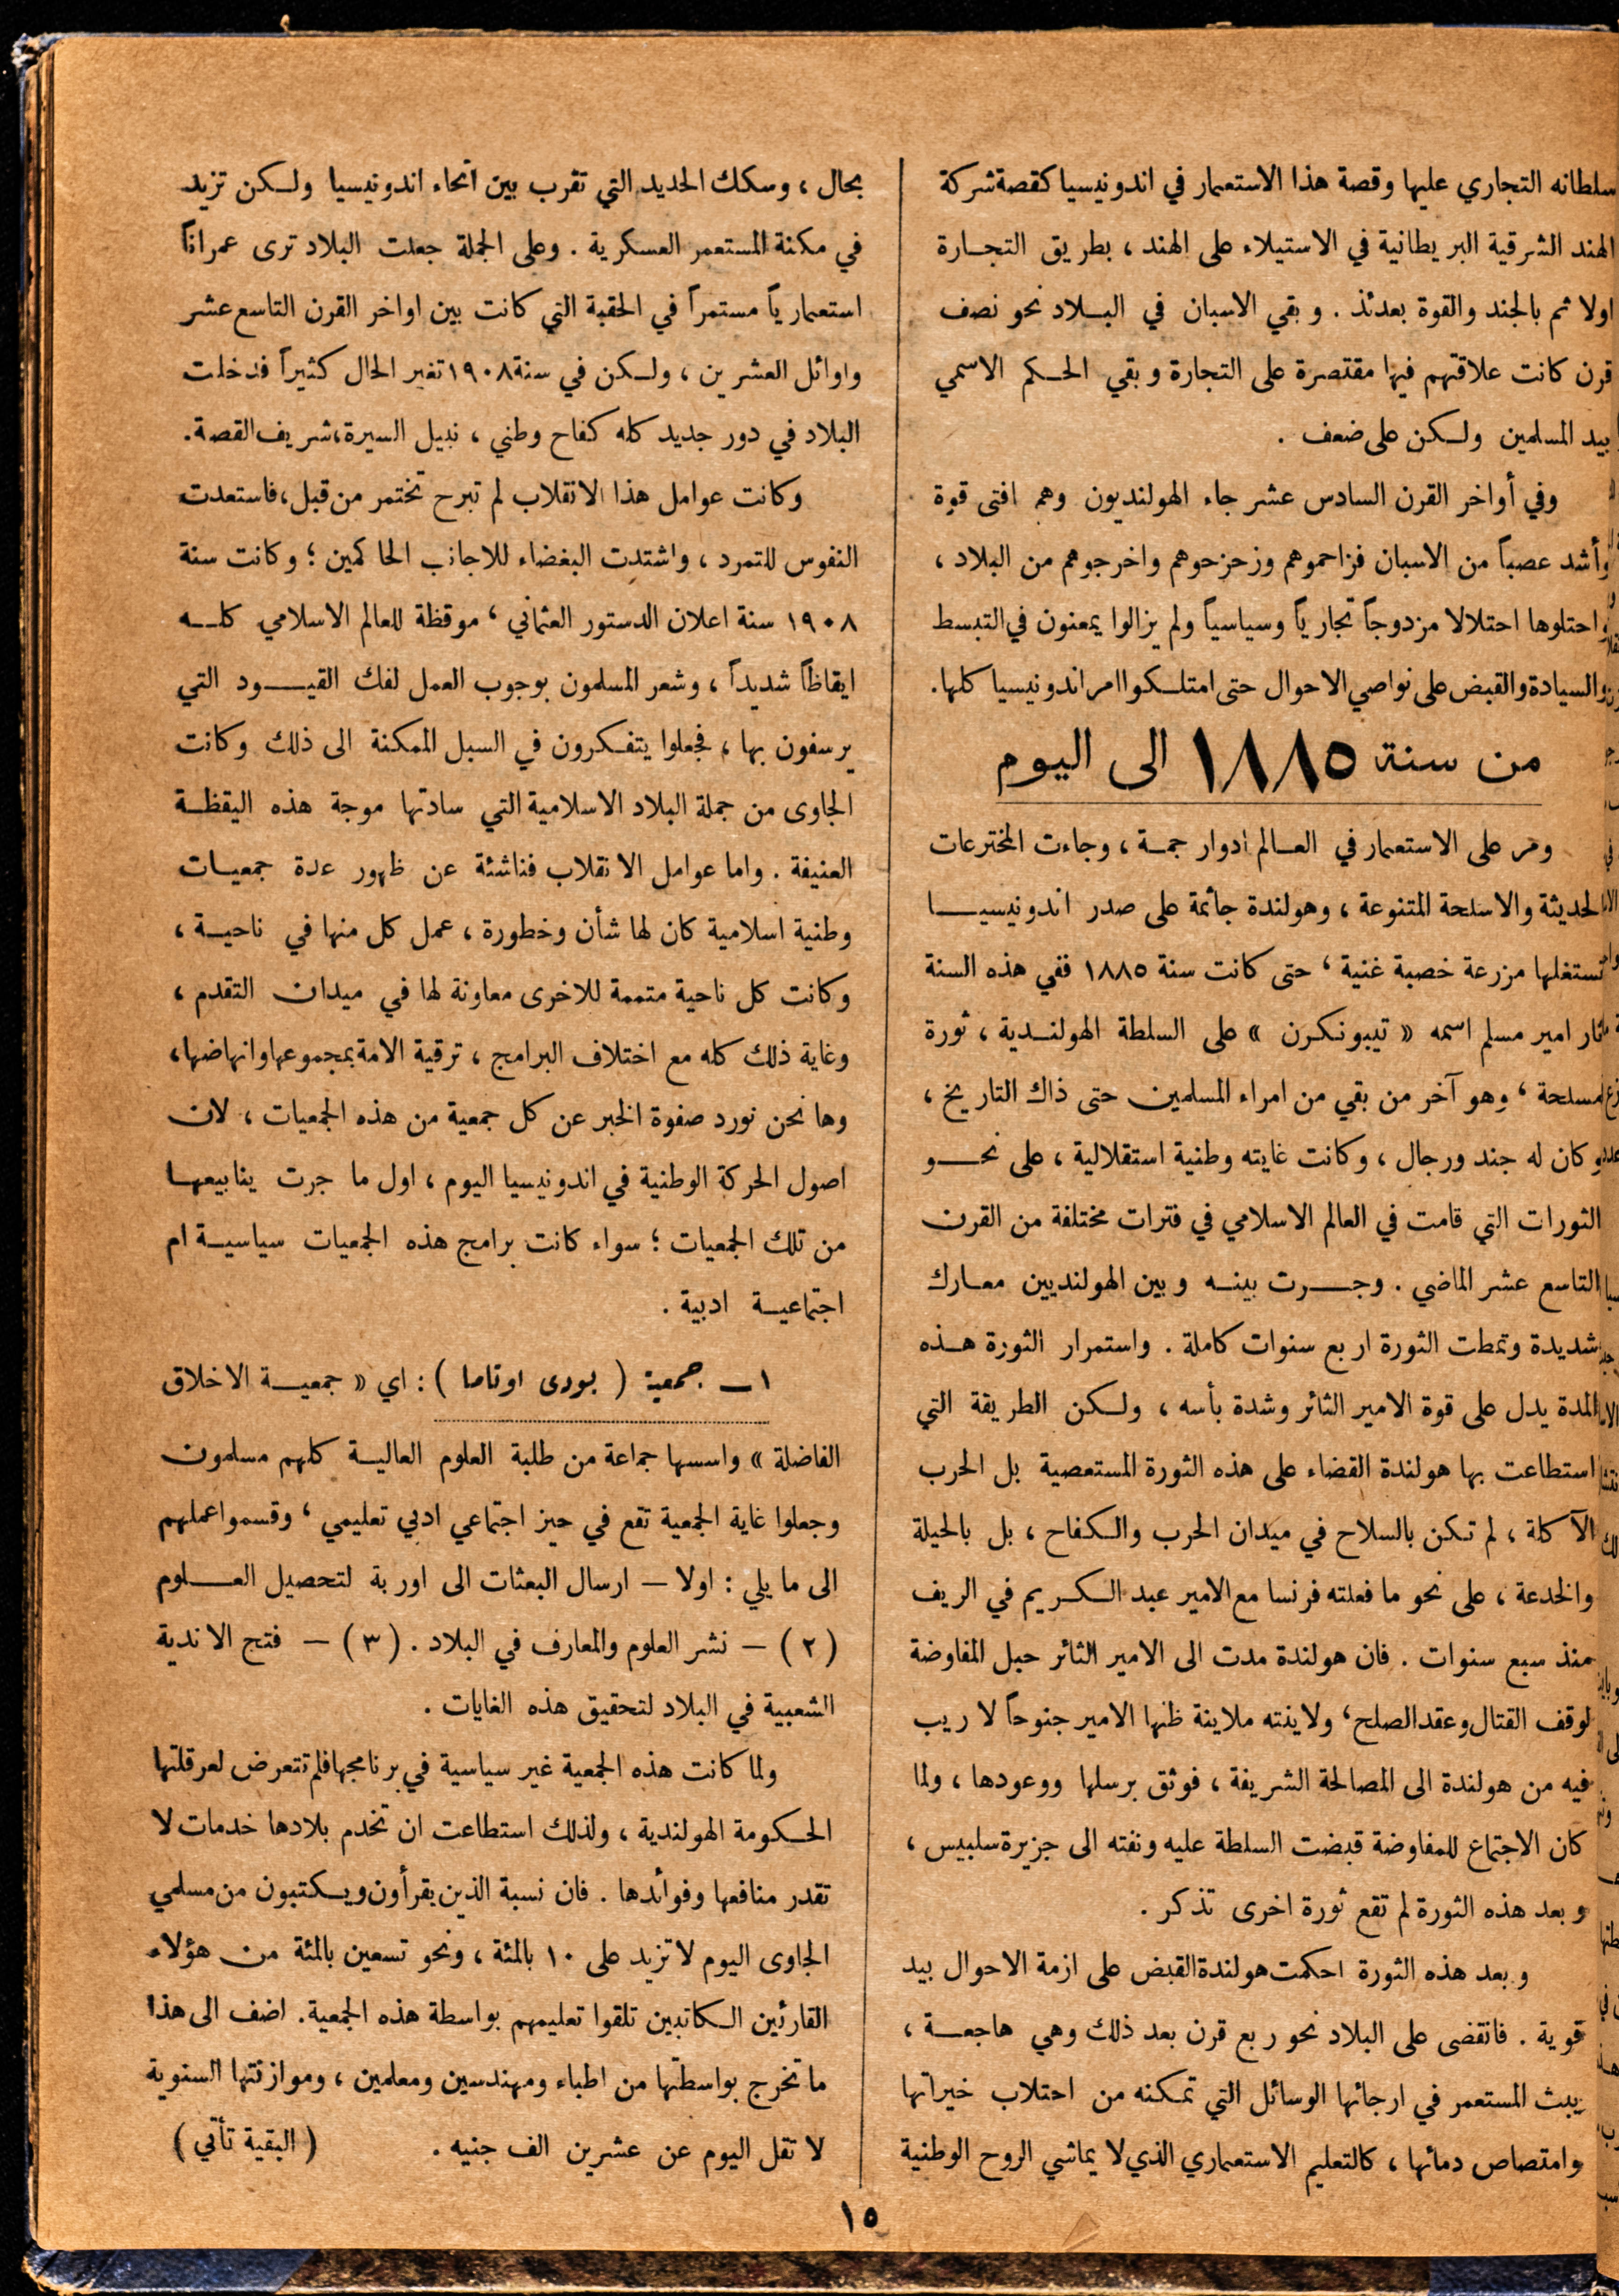 سلطانه التجاري عليها وقصة هذا الاستعمار في اندونيسيا كقصة شركة
الهند الشرقية البريطانية في الاستيلاء على الهند ، بطريق التجارة
اولا ثم بالجند والقوة بعدئذ . وبقي الاسبان في البلاد نحو نصف
قرن كانت علاقتهم فيها مقتصرة على التجارة وبقي الحكم الاسمي
بيد المسلمين ولكن على ضعف .
وفي أواخر القرن السادس عشر جاء الهولنديون وهم افتى قوة
وأشد عصباً من الاسبان فزاحموهم وزحزحوهم واخرجوهم من البلاد ،
واحتلوها احتلالا مزدوجاً تجارياً وسياسياً ولم يزالوا يمعنون في التبسط
والسيادة والقبض على نواصي الاحوال حتى امتلكوا امر اندونيسيا كلها .
من سنة ١٨٨٥ الى اليوم
ومر على الاستعمار في العالم ادوار جمة ، وجاءت المخترعات
الحديثة والاسلحة المتنوعة ، وهولندة جاثمة على صدر اندونيسيا
تستغلها مزرعة خصبة غنية ، حتى كانت سنة ١٨٨٥ ففي هذه السنة
ثار امير مسلم اسمه « تيبونكرن » على السلطة الهولندية ، ثورة
مسلحة ، وهو آخر من بقي من امراء المسلمين حتى ذاك التاريخ ،
وكان له جند ورجال ، وكانت غايته وطنية استقلالية ، على نحو
الثورات التي قامت في العالم الاسلامي في فترات مختلفة من القرن
التاسع عشر الماضي . وجرت بينه وبين الهولنديين معارك
شديدة وتمطت الثورة اربع سنوات كاملة . واستمرار الثورة هذه
المدة يدل على قوة الامير الثائر وشدة بأسه ، ولكن الطريقة التي
استطاعت بها هولندة القضاء على هذه الثورة المستعصية بل الحرب
الآكلة ، لم تكن بالسلاح في ميدان الحرب والكفاح ، بل بالحيلة
والخدعة ، على نحو ما فعلته فرنسا مع الامير عبد الكريم في الريف
منذ سبع سنوات . فان هولندة مدت الى الامير الثائر حبل المفاوضة
لوقف القتال وعقد الصلح ، ولاينته ملاينة ظنها الامير جنوحاً لا ريب
فيه من هولندة الى المصالحة الشريفة ، فوثق برسلها ووعودها ، ولما
كان الاجتماع للمفاوضة قبضت السلطة عليه ونفته الى جزيرة سلبيس ،
وبعد هذه الثورة لم تقع ثورة اخرى تذكر .
وبعد هذه الثورة احكمت هولندة القبض على ازمة الاحوال بيد
قوية . فانقضى على البلاد نحو ربع قرن بعد ذلك وهي هاجعة ،
يبث المستعمر في ارجائها الوسائل التي تمكنه من احتلاب خيراتها
وامتصاص دمائها ، كالتعليم الاستعماري الذي لا يماشي الروح الوطنية
بحال ، وسكك الحديد التي تقرب بين انحاء اندونيسيا ولكن تزيد
في مكنة المستعمر العسكرية . وعلى الجملة جعلت البلاد ترى عمراناً
استعمارياً مستمراً في الحقبة التي كانت بين اواخر القرن التاسع عشر
واوائل العشرين ، ولكن في سنة ١٩٠٨ تغير الحال كثيراً فدخلت
البلاد في دور جديد كله كفاح وطني ، نبيل السيرة ، شريف القصة .
وكانت عوامل هذا الانقلاب لم تبرح تختمر من قبل ، فاستعدت
النفوس للتمرد ، واشتدت البغضاء للاجانب الحاكمين ؛ وكانت سنة
١٩٠٨ سنة اعلان الدستور العثماني ، موقظة للعالم الاسلامي كله
ايقاظاً شديداً ، وشعر المسلمون بوجوب العمل لفك القيود التي
يرسفون بها ، فجعلوا يتفكرون في السبل الممكنة الى ذلك وكانت
الجاوى من جملة البلاد الاسلامية التي سادتها موجة هذه اليقظة
العنيفة . واما عوامل الانقلاب فناشئة عن ظهور عدة جمعيات
وطنية اسلامية كان لها شأن وخطورة ، عمل كل منها في ناحية ،
وكانت كل ناحية متممة للاخرى معاونة لها في ميدان التقدم ،
وغاية ذلك كله مع اختلاف البرامج ، ترقية الامة بمجموعها وانهاضها ،
وها نحن نورد صفوة الخبر عن كل جمعية من هذه الجمعيات ، لان
اصول الحركة الوطنية في اندونيسيا اليوم ، اول ما جرت ينابيعها
من تلك الجمعيات ؛ سواء كانت برامج هذه الجمعيات سياسية ام
اجتماعية ادبية .
١ ـ جمعية ( بودى اوتاما ) : اي « جمعية الاخلاق
الفاضلة » واسسها جماعة من طلبة العلوم العالية كلهم مسلمون
وجعلوا غاية الجمعية تقع في حيز اجتماعي ادبي تعليمي ، وقسموا عملهم
الى ما يلي : اولا — ارسال البعثات الى اوربة لتحصيل العلوم
( ٢ ) — نشر العلوم والمعارف في البلاد . ( ٣ ) — فتح الاندية
الشعبية في البلاد لتحقيق هذه الغايات .
ولما كانت هذه الجمعية غير سياسية في برنامجها فلم تتعرض لعرقلتها
الحكومة الهولندية ، ولذلك استطاعت ان تخدم بلادها خدمات لا
تقدر منافعها وفوائدها . فان نسبة الذين يقرأون ويكتبون من مسلمي
الجاوى اليوم لا تزيد على ١٠ بالمئة ، ونحو تسعين بالمئة من هؤلاء
القارئين الكاتبين تلقوا تعليمهم بواسطة هذه الجمعية . اضف الى هذا
ما تخرج بواسطتها من اطباء ومهندسين ومعلمين ، وموازنتها السنوية
لا تقل اليوم عن عشرين الف جنيه . ( البقية تأتي )
١٥